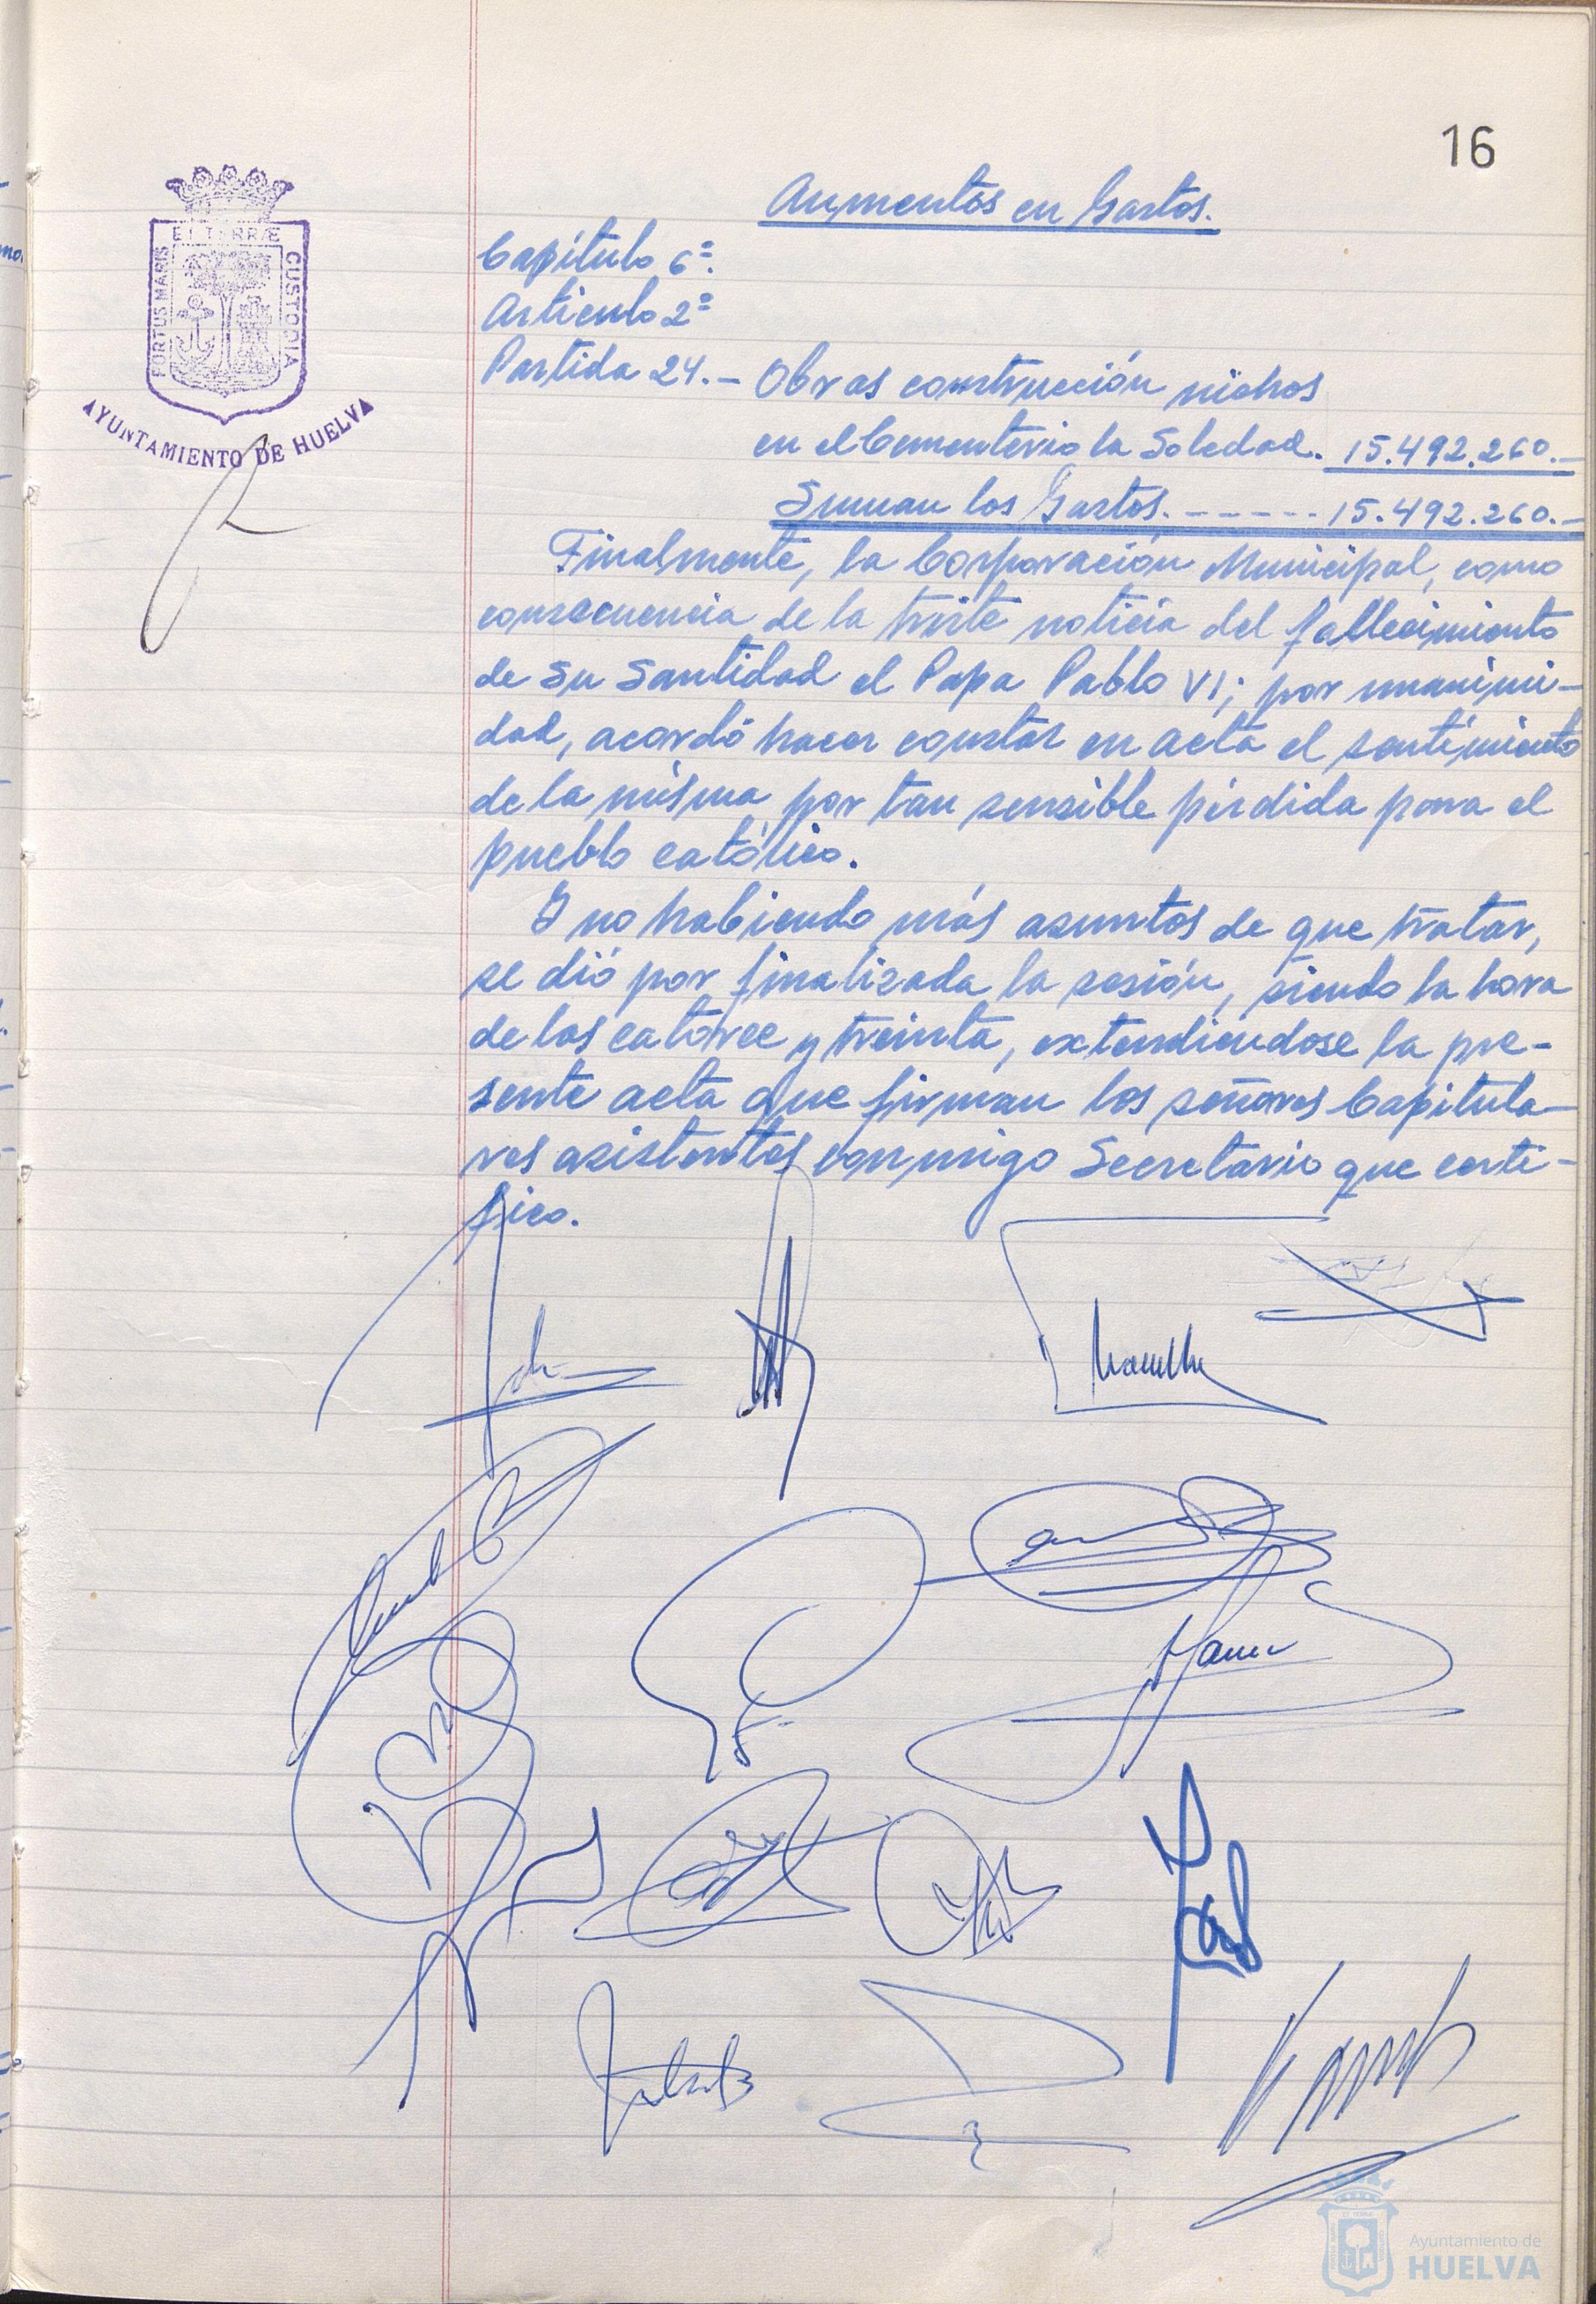 16
PORTUS MARIS
ET TERRÆ
CUSTODIA
AYUNTAMIENTO DE HUELVA
Aumentos en Gastos.
Capítulo 6º.
Artículo 2º
Partida 24.- Obras construcción nichos
en el Cementerio la Soledad. 15.492.260.-
Suman los Gastos. - - - - - 15.492.260.-
Finalmente, la Corporación Municipal, como
consecuencia de la triste noticia del fallecimiento
de Su Santidad el Papa Pablo VI; por unanimi-
dad, acordó hacer constar en acta el sentimiento
de la misma por tan sensible pérdida para el
pueblo católico.
Y no habiendo más asuntos de que tratar,
se dió por finalizada la sesión, siendo la hora
de las catorce y treinta, extendiéndose la pre-
sente acta que firman los señores Capitula-
res asistentes conmigo Secretario que certi-
fico.
Ayuntamiento de
HUELVA